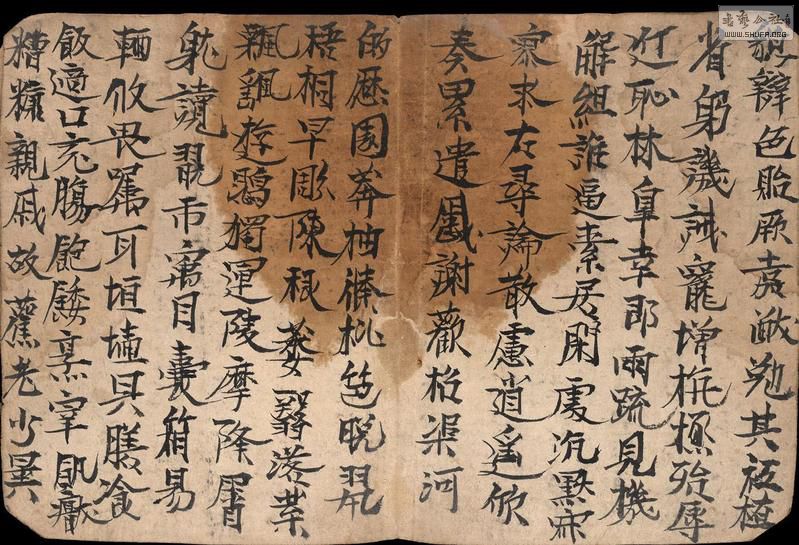 書藝公社
WWW.SHUFA.ORG
貌辯色貽厥嘉猷勉其祗植
省躬譏誡寵增抗極殆辱
近恥林皐幸即兩疏見機
解組誰逼索居閑處沉默寂
寥求古尋論散慮逍遙欣
奏累遣慼謝歡招渠河
的歷園莽抽條枇杷晚翠
梧桐早彫陳根委翳落葉
飄颻遊鵾獨運陵摩降霄
躭讀翫市寓目囊箱易
輶攸畏屬耳垣墻具膳飡
飯適口充膓飽飫烹宰飢猒
糟糠親戚故舊老少異